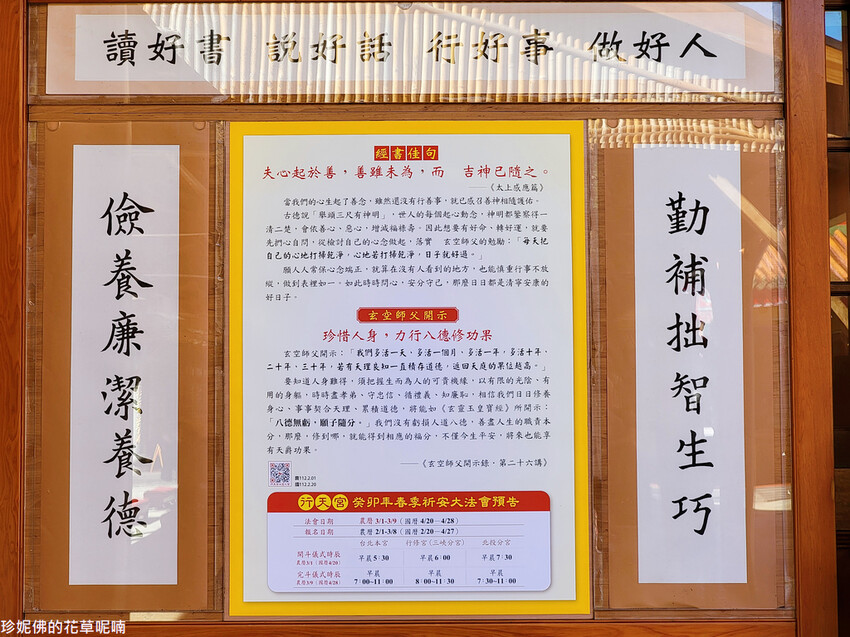 讀好書 說好話 行好事 做好人
經書佳句
夫心起於善，善雖未為，而 吉神已隨之。
——《太上感應篇》
當我們的心生起了善念，雖然還沒有行善事，就已感召善神相隨護佑。
古德說「舉頭三尺有神明」，世人的每個起心動念，神明都鑒察得一
清二楚，會依善心、惡心，增減福祿壽。因此想要有好命、轉好運，就要
先捫心自問，從檢討自己的心念做起，落實 玄空師父的勉勵：「每天把
自己的心地打掃乾淨，心地若打掃乾淨，日子就好過。」
願人人常保心念端正，就算在沒有人看到的地方，也能慎重行事不放
縱，做到表裡如一。如此時時問心，安分守己，那麼日日都是清寧安康的
好日子。
玄空師父開示
珍惜人身，力行八德修功果
玄空師父開示：「我們多活一天、多活一個月、多活一年，多活十年，
二十年、三十年，若有天理良知一直積存道德，返回天庭的果位越高。」
要知道人身難得，須把握生而為人的可貴機緣，以有限的光陰、有
用的身軀，時時盡孝弟、守忠信、循禮義、知廉恥，相信我們日日修養
身心，事事契合天理、累積道德，將能如《玄靈玉皇寶經》所開示：
「八德無虧，願子隨分。」我們沒有虧損人道八德，善盡人生的職責本
分，那麼，修到哪，就能得到相應的福分，不僅今生平安，將來也能享
有天爵功果。
——《玄空師父開示錄，第二十六講》
農112.2.01
國112.2.20
行天宮 癸卯年春季祈安大法會預告
法會日期 農曆 3/1-3/9（國曆 4/20—4/28）
報名日期 農曆 2/1-3/8（國曆 2/20—4/27）
台北本宮 行修宮（三峽分宮） 北投分宮
開斗儀式時辰 早晨5：30 早晨6：00 早晨7：30
農曆3/1（國曆4/20）
完斗儀式時辰 早晨 早晨 早晨
農曆3/9（國曆4/28） 7：00~11：00 8：00~11：30 7：30~11：00
勤補拙智生巧
儉養廉潔養德
珍妮佛的花草呢喃